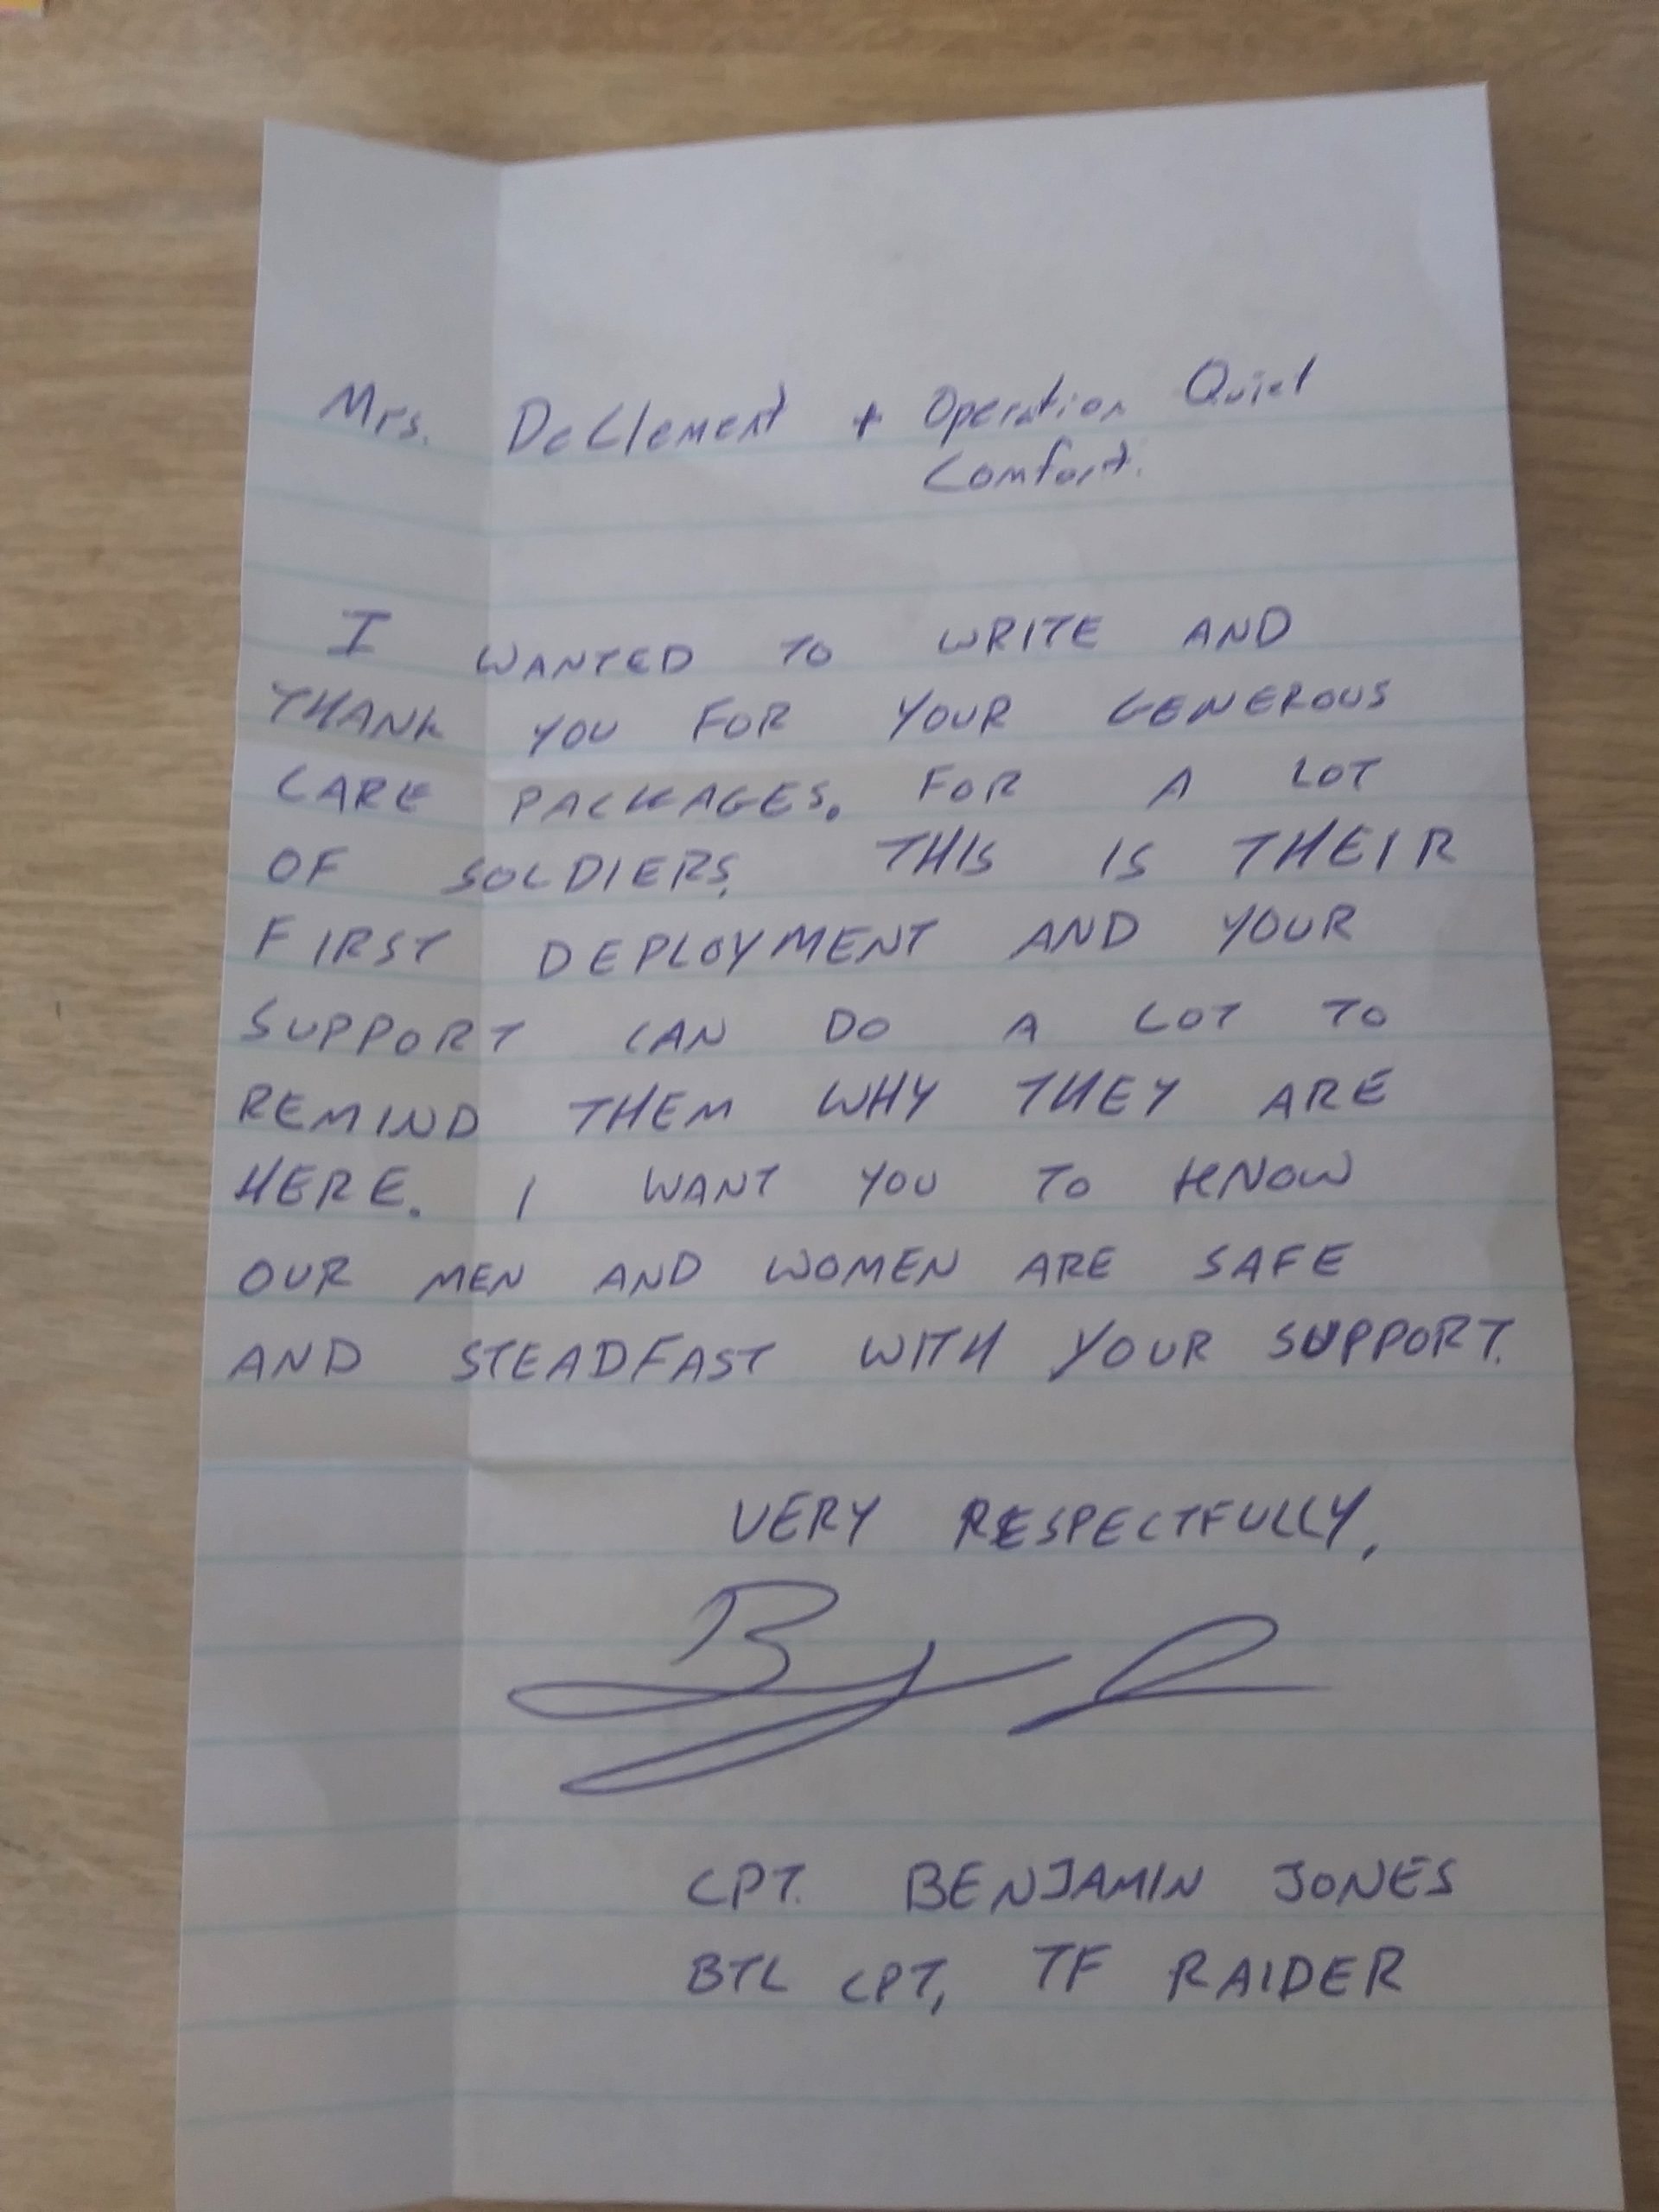 Mrs. DeClement + Operation Quiet
Comfort.
I WANTED TO WRITE AND
THANK YOU FOR YOUR GENEROUS
CARE PACKAGES. FOR A LOT
OF SOLDIERS, THIS IS THEIR
FIRST DEPLOYMENT AND YOUR
SUPPORT CAN DO A LOT TO
REMIND THEM WHY THEY ARE
HERE. I WANT YOU TO KNOW
OUR MEN AND WOMEN ARE SAFE
AND STEADFAST WITH YOUR SUPPORT.
VERY RESPECTFULLY,
CPT. BENJAMIN JONES
BTL CPT, TF RAIDER